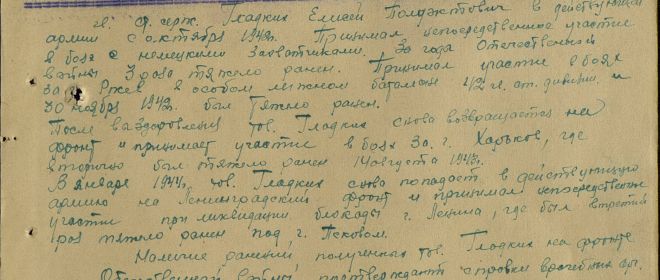 гв. ст. серж. Гладких Елисей Полуэктович в действующей
армии с октября 1942г. Принимал непосредственное участие
в боях с немецкими захватчиками. За года Отечественной
войны 3 раза тяжело ранен. Принимал участие в боях
за г. Ржев в особом лыжном батальоне ст. дивизии и
30 ноября 1942г. был тяжело ранен.
После выздоровления тов. Гладких снова возвращается на
фронт и принимает участие в боях за г. Харьков, где
вторично был тяжело ранен 14 августа 1943г.
В январе 1944г. тов. Гладких снова попадает в действующую
армию на Ленинградский фронт и принимал непосредственное
участие при ликвидации блокады г. Ленина, где был в третий
раз тяжело ранен под г. Псковом.
Наличие ранений полученных тов. Гладких на фронте
Отечественной войны, подтверждают справки врачебных